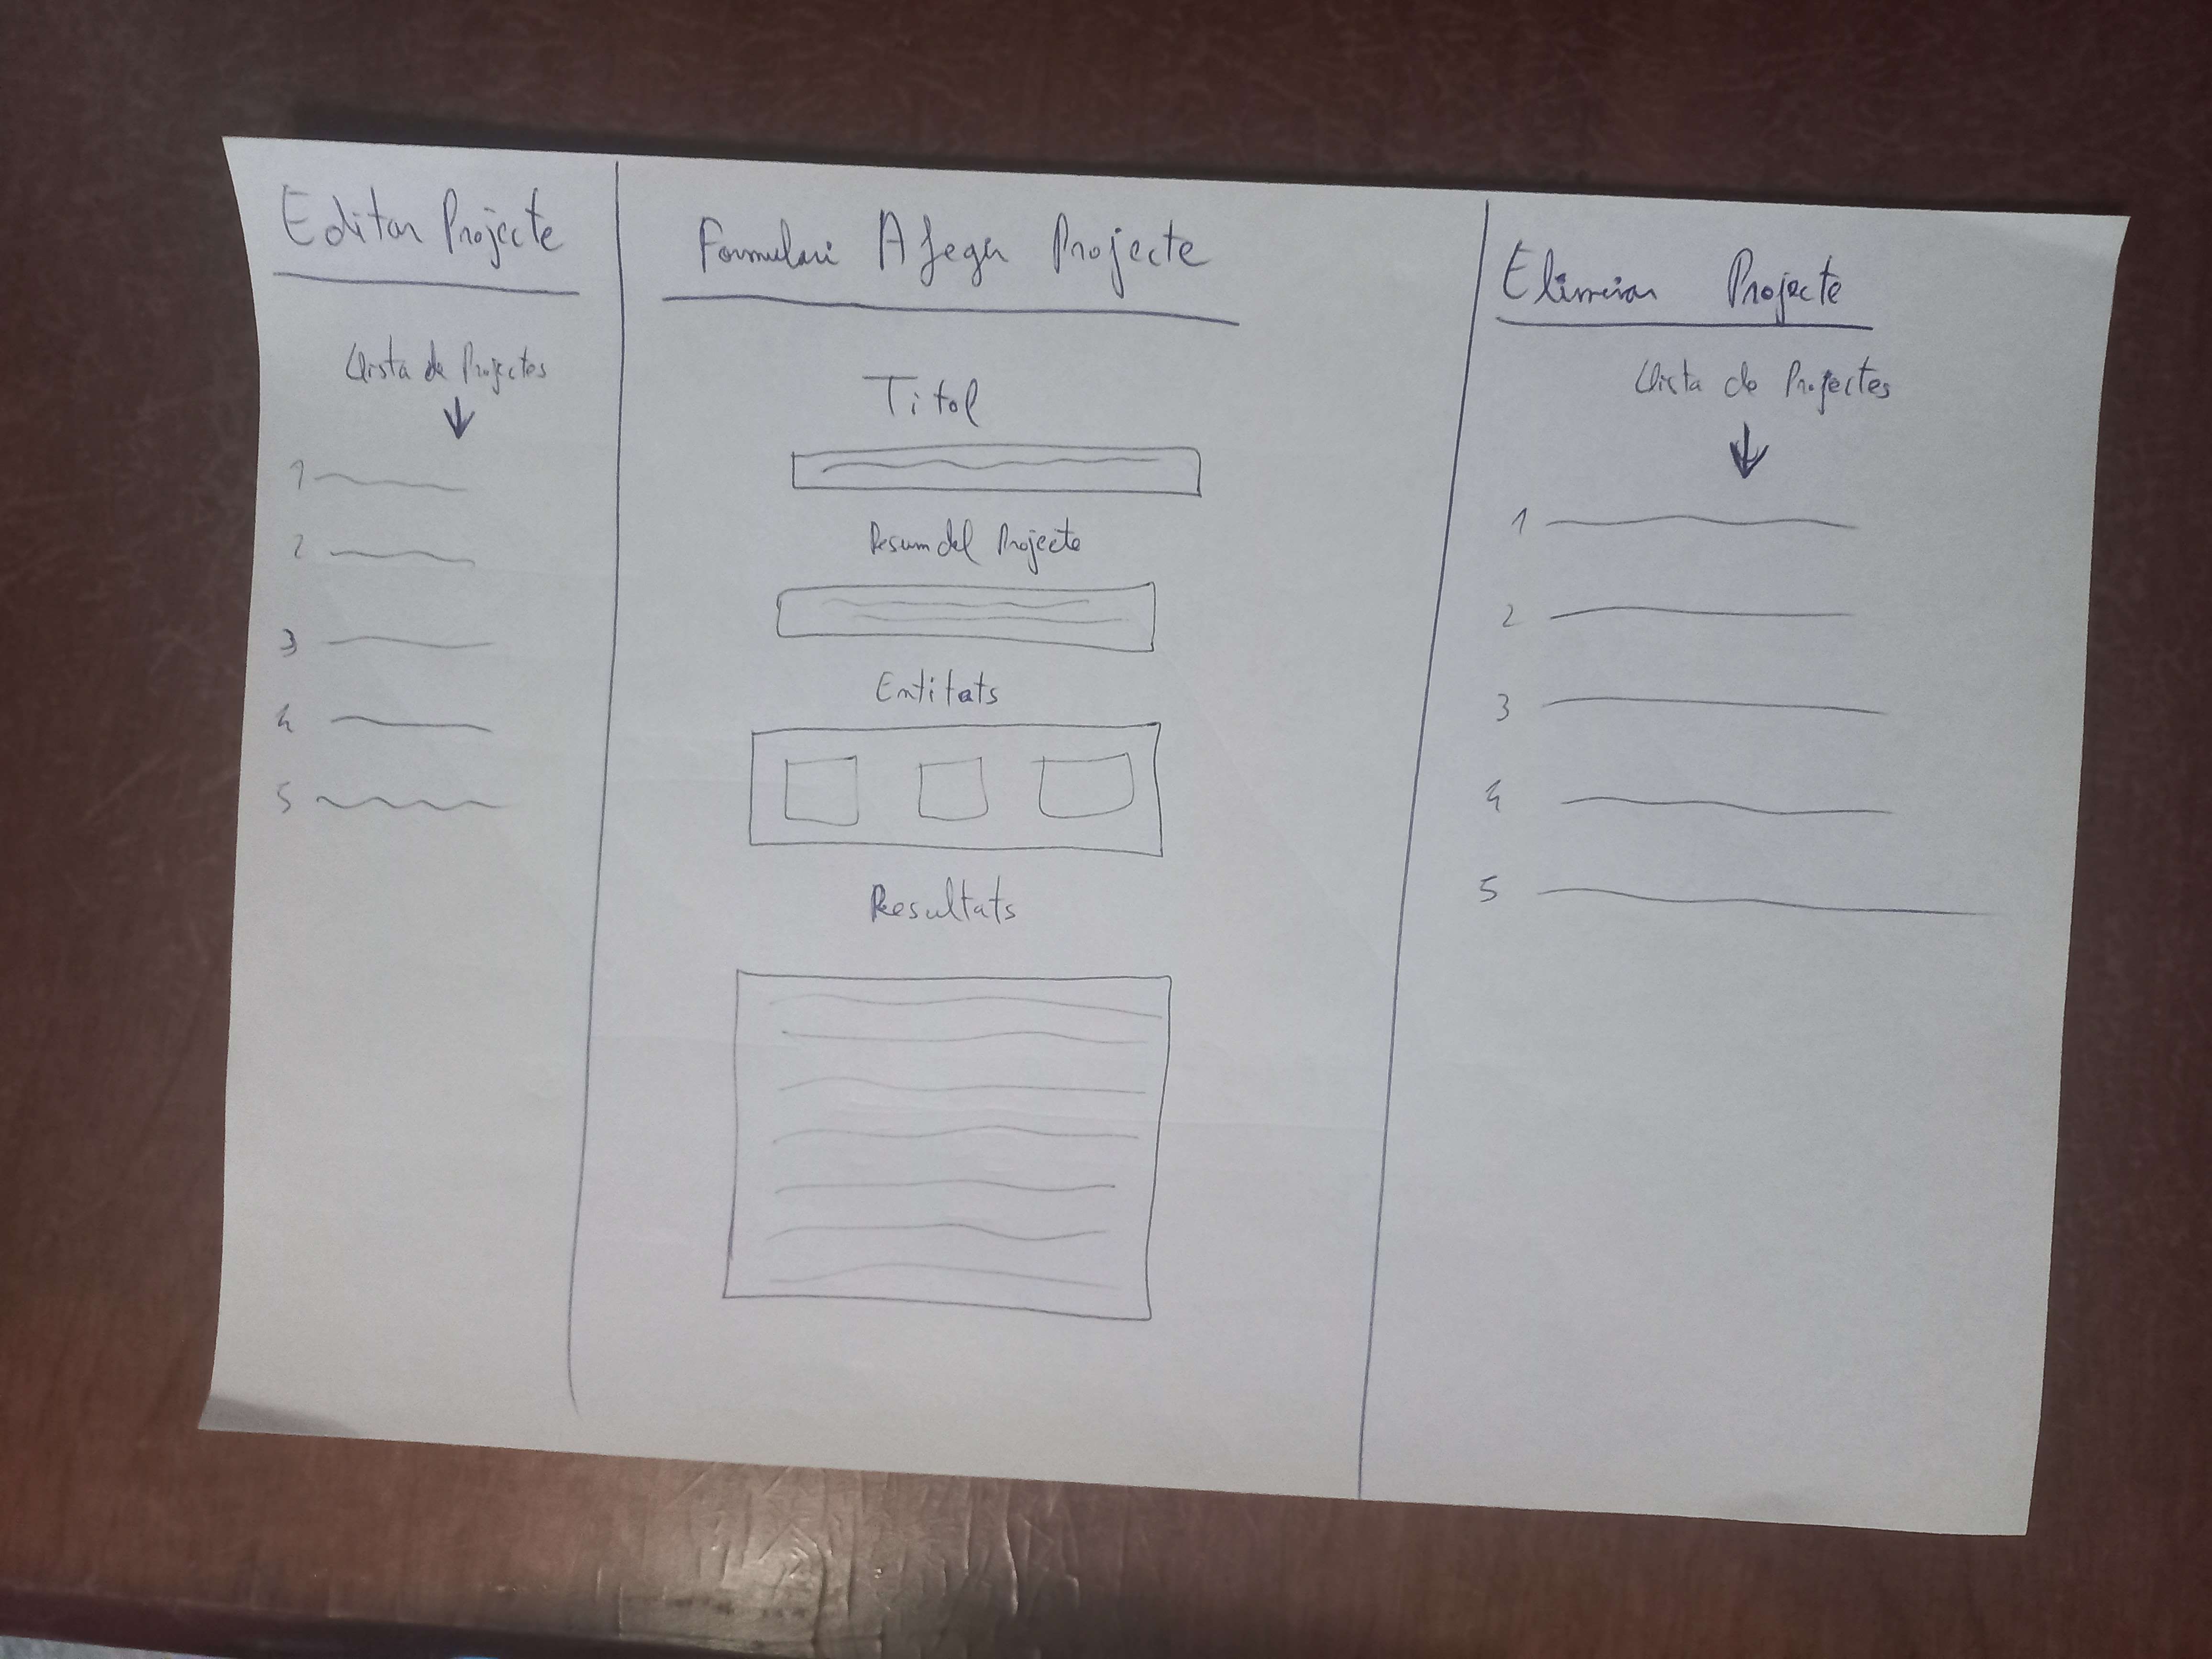 Editar Projecte
Llista de Projectes
1
2
3
4
5
Formulari Afegir Projecte
Titol
Resum del Projecte
Entitats
Resultats
Eliminar Projecte
Llista de Projectes
1
2
3
4
5